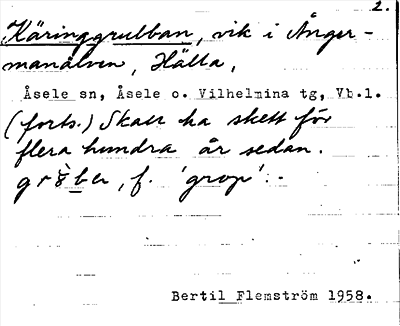 2.
Käringgrubban, vik i Ånger-
manälven, Hälla,
Åsele sn, Åsele o. Vilhelmina tg, Vb.l.
(forts.) Skall ha skett för
flera hundra år sedan.
f. 'grop'.
Bertil Flemström 1958.